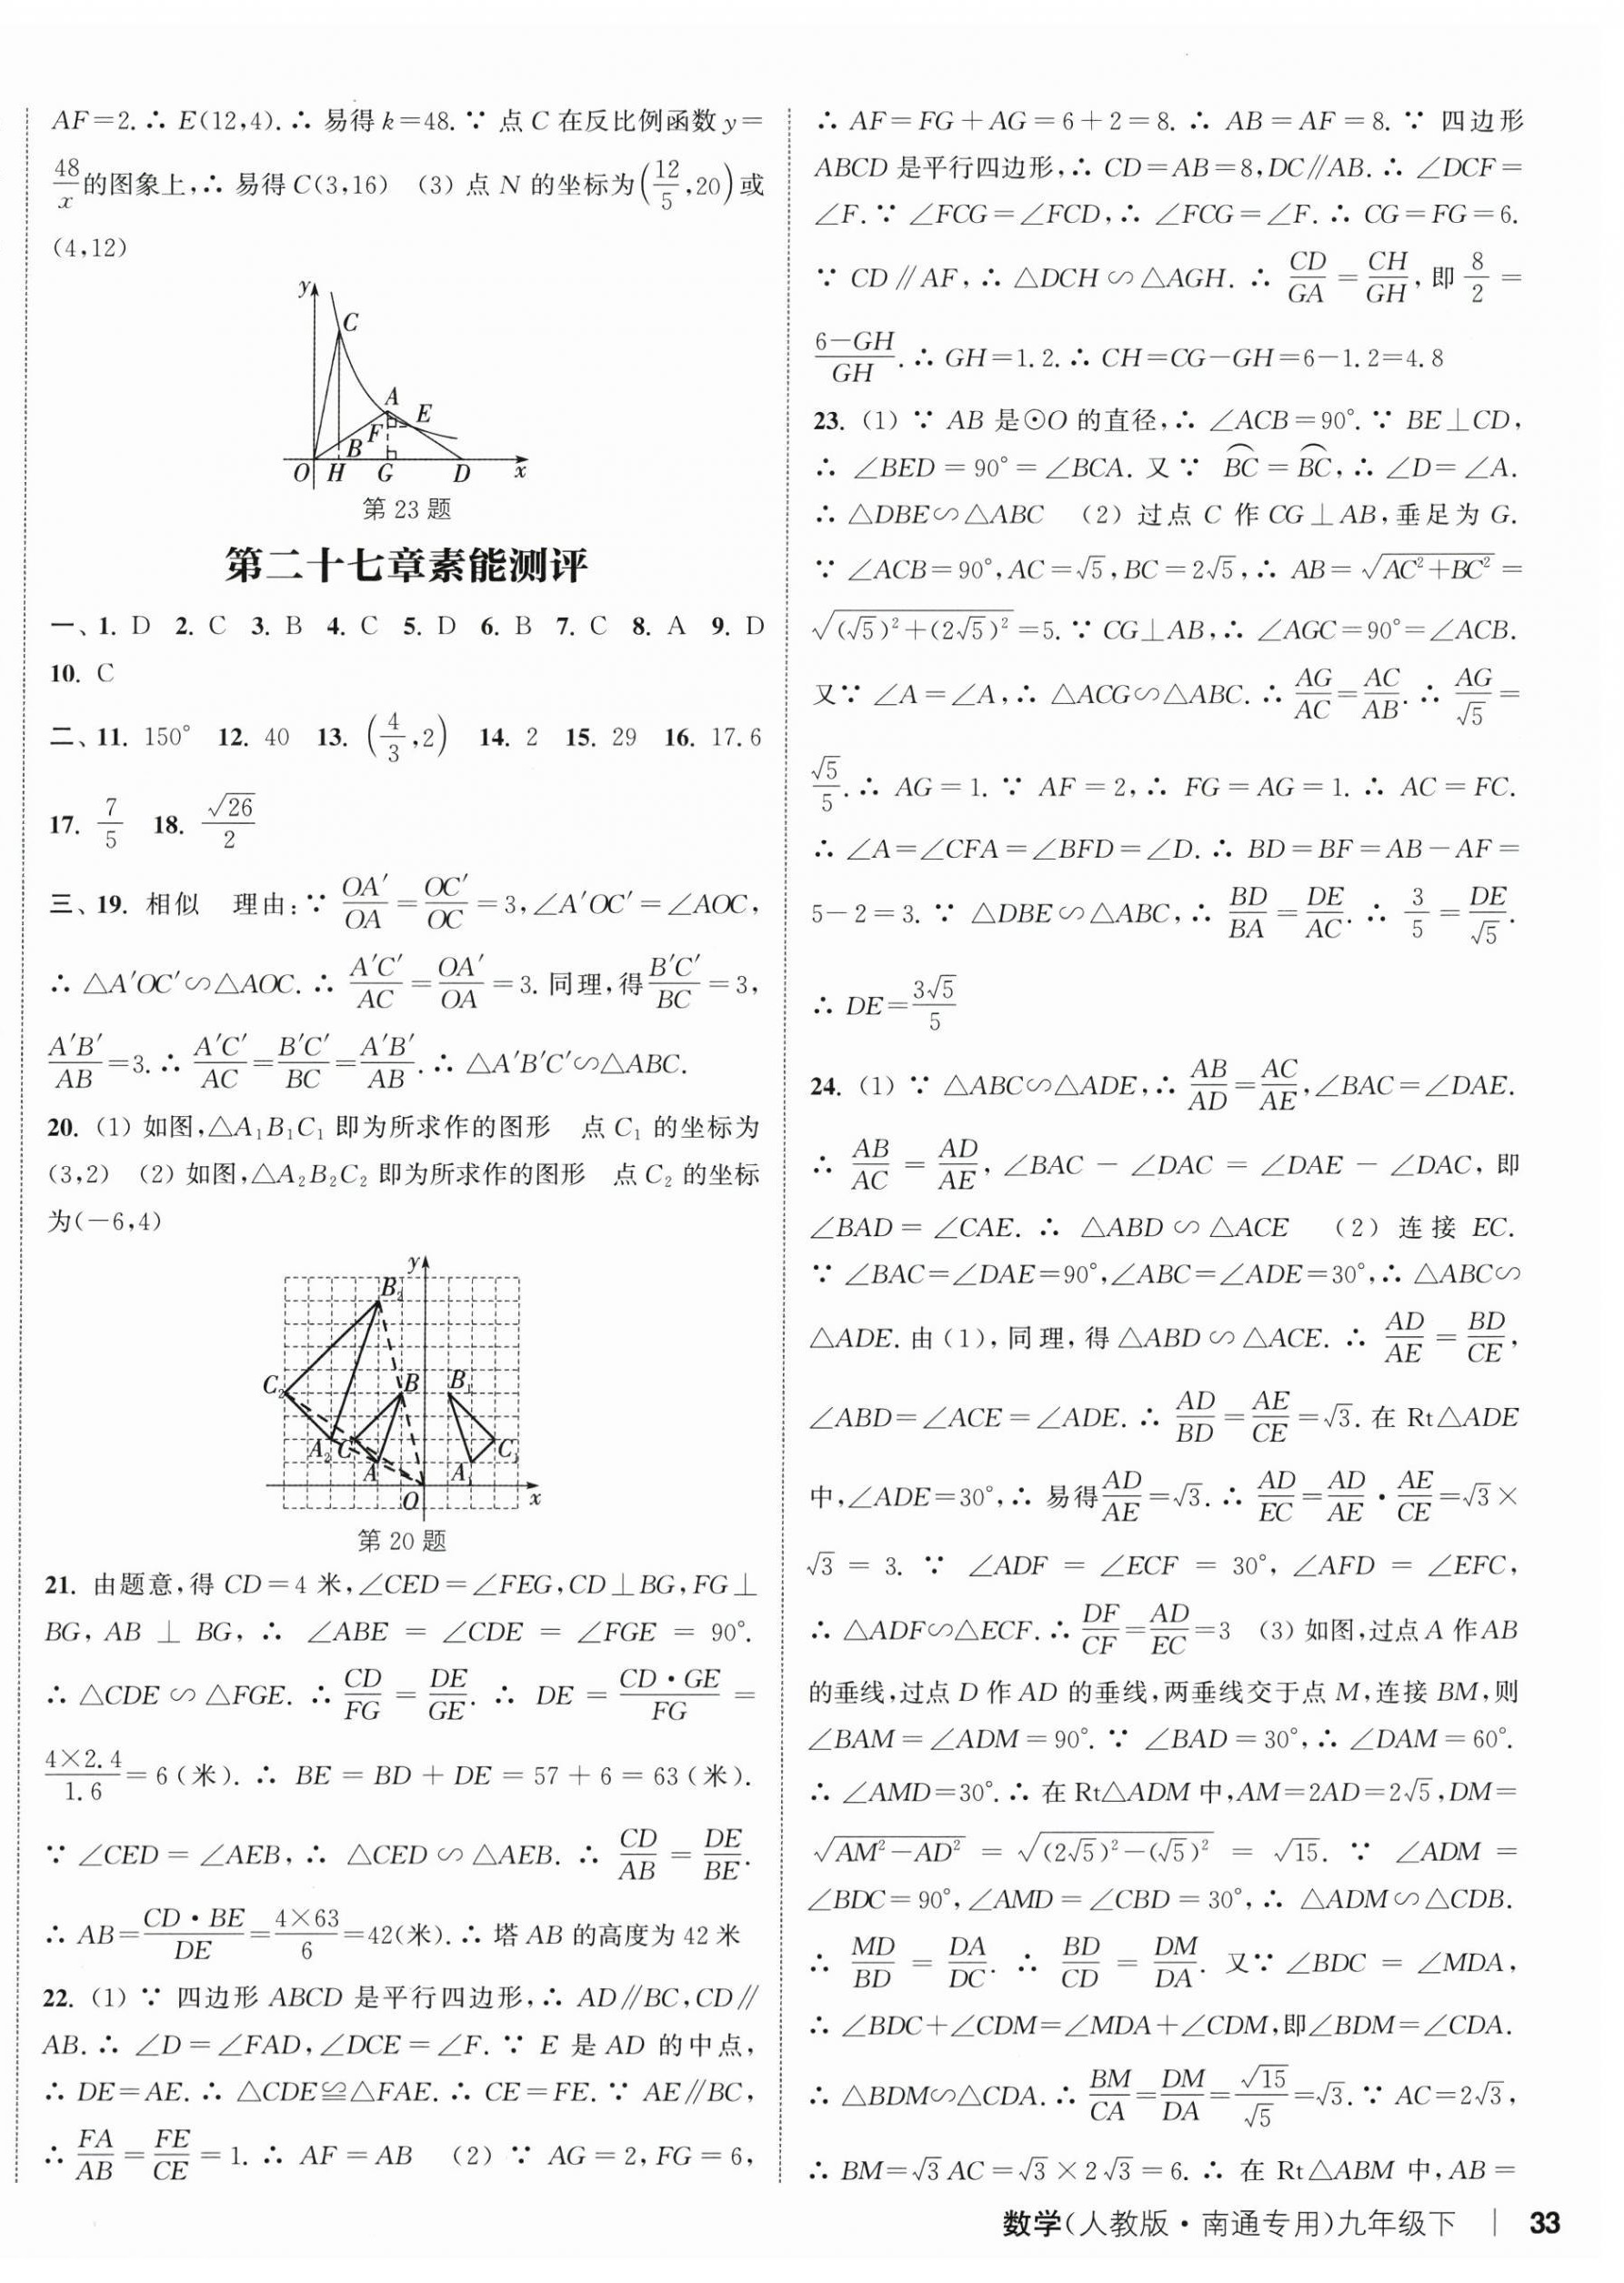 AF=2.∴ E(12,4).∴ 易得k=48.∵ 点 C 在反比例函数 y=
48/x 的图象上,∴ 易得C(3,16) (3) 点 N 的坐标为(12/5,20)或
(4,12)
y
C
A
E
F
B
O H G D x
第 23 题
第二十七章素能测评
一、1. D 2. C 3. B 4. C 5. D 6. B 7. C 8. A 9. D
10. C
二、11. 150° 12. 40 13. (4/3,2) 14. 2 15. 29 16. 17.6
17. 7/5 18. √26/2
三、19. 相似 理由:∵ OA′/OA=OC′/OC=3,∠A′OC′=∠AOC,
∴ △A′OC′∽△AOC.∴ A′C′/AC=OA′/OA=3.同理,得B′C′/BC=3,
A′B′/AB=3.∴ A′C′/AC=B′C′/BC=A′B′/AB.∴ △A′B′C′∽△ABC.
20. (1) 如图,△A₁B₁C₁ 即为所求作的图形 点 C₁ 的坐标为
(3,2) (2) 如图,△A₂B₂C₂ 即为所求作的图形 点 C₂ 的坐标
为(-6,4)
y
B₂
C₂ B B₁
A₂ C C₁
A A₁
O x
第 20 题
21. 由题意,得 CD=4 米,∠CED=∠FEG,CD⊥BG,FG⊥
BG, AB ⊥ BG, ∴ ∠ABE = ∠CDE = ∠FGE = 90°.
∴ △CDE∽△FGE. ∴ CD/FG = DE/GE. ∴ DE = CD·GE/FG =
4×2.4/1.6=6(米). ∴ BE=BD+DE=57+6=63(米).
∵ ∠CED=∠AEB, ∴ △CED∽△AEB. ∴ CD/AB = DE/BE.
∴ AB=CD·BE/DE=4×63/6=42(米).∴ 塔 AB 的高度为 42 米
22. (1) ∵ 四边形 ABCD 是平行四边形,∴ AD∥BC,CD∥
AB.∴ ∠D=∠FAD,∠DCE=∠F.∵ E 是 AD 的中点,
∴ DE=AE.∴ △CDE≌△FAE.∴ CE=FE.∵ AE∥BC,
∴ FA/AB=FE/CE=1.∴ AF=AB (2) ∵ AG=2,FG=6,
∴ AF=FG+AG=6+2=8.∴ AB=AF=8.∵ 四边形
ABCD 是平行四边形,∴ CD=AB=8,DC∥AB.∴ ∠DCF=
∠F.∵ ∠FCG=∠FCD,∴ ∠FCG=∠F.∴ CG=FG=6.
∵ CD∥AF,∴ △DCH∽△AGH.∴ CD/GA=CH/GH,即 8/2 =
(6-GH)/GH.∴ GH=1.2.∴ CH=CG-GH=6-1.2=4.8
23. (1) ∵ AB 是⊙O 的直径,∴ ∠ACB=90°.∵ BE⊥CD,
∴ ∠BED=90°=∠BCA.又∵ B͡C=B͡C,∴ ∠D=∠A.
∴ △DBE∽△ABC (2) 过点 C 作 CG⊥AB,垂足为 G.
∵ ∠ACB=90°,AC=√5,BC=2√5,∴ AB=√(AC²+BC²)=
√((√5)²+(2√5)²)=5.∵ CG⊥AB,∴ ∠AGC=90°=∠ACB.
又∵ ∠A=∠A,∴ △ACG∽△ABC.∴ AG/AC=AC/AB.∴ AG/√5=
√5/5.∴ AG=1.∵ AF=2,∴ FG=AG=1.∴ AC=FC.
∴ ∠A=∠CFA=∠BFD=∠D.∴ BD=BF=AB-AF=
5-2=3.∵ △DBE∽△ABC,∴ BD/BA=DE/AC.∴ 3/5=DE/√5.
∴ DE=3√5/5
24. (1) ∵ △ABC∽△ADE,∴ AB/AD=AC/AE,∠BAC=∠DAE.
∴ AB/AC = AD/AE, ∠BAC - ∠DAC = ∠DAE - ∠DAC, 即
∠BAD=∠CAE.∴ △ABD∽△ACE (2) 连接 EC.
∵ ∠BAC=∠DAE=90°,∠ABC=∠ADE=30°,∴ △ABC∽
△ADE.由(1),同理,得△ABD∽△ACE.∴ AD/AE=BD/CE,
∠ABD=∠ACE=∠ADE.∴ AD/BD=AE/CE=√3.在 Rt△ADE
中,∠ADE=30°,∴ 易得AD/AE=√3.∴ AD/EC=AD/AE·AE/CE=√3×
√3 = 3. ∵ ∠ADF = ∠ECF = 30°, ∠AFD = ∠EFC,
∴ △ADF∽△ECF.∴ DF/CF=AD/EC=3 (3) 如图,过点 A 作AB
的垂线,过点 D 作 AD 的垂线,两垂线交于点 M,连接 BM,则
∠BAM=∠ADM=90°.∵ ∠BAD=30°,∴ ∠DAM=60°.
∴ ∠AMD=30°.∴ 在 Rt△ADM 中,AM=2AD=2√5,DM=
√(AM²-AD²) = √((2√5)²-(√5)²) = √15. ∵ ∠ADM =
∠BDC=90°,∠AMD=∠CBD=30°,∴ △ADM∽△CDB.
∴ MD/BD = DA/DC. ∴ BD/CD = DM/DA. 又∵ ∠BDC = ∠MDA,
∴ ∠BDC+∠CDM=∠MDA+∠CDM,即∠BDM=∠CDA.
∴ △BDM∽△CDA.∴ BM/CA=DM/DA=√15/√5=√3.∵ AC=2√3,
∴ BM=√3 AC=√3×2√3=6.∴ 在 Rt△ABM 中,AB=
数学(人教版·南通专用)九年级下 | 33